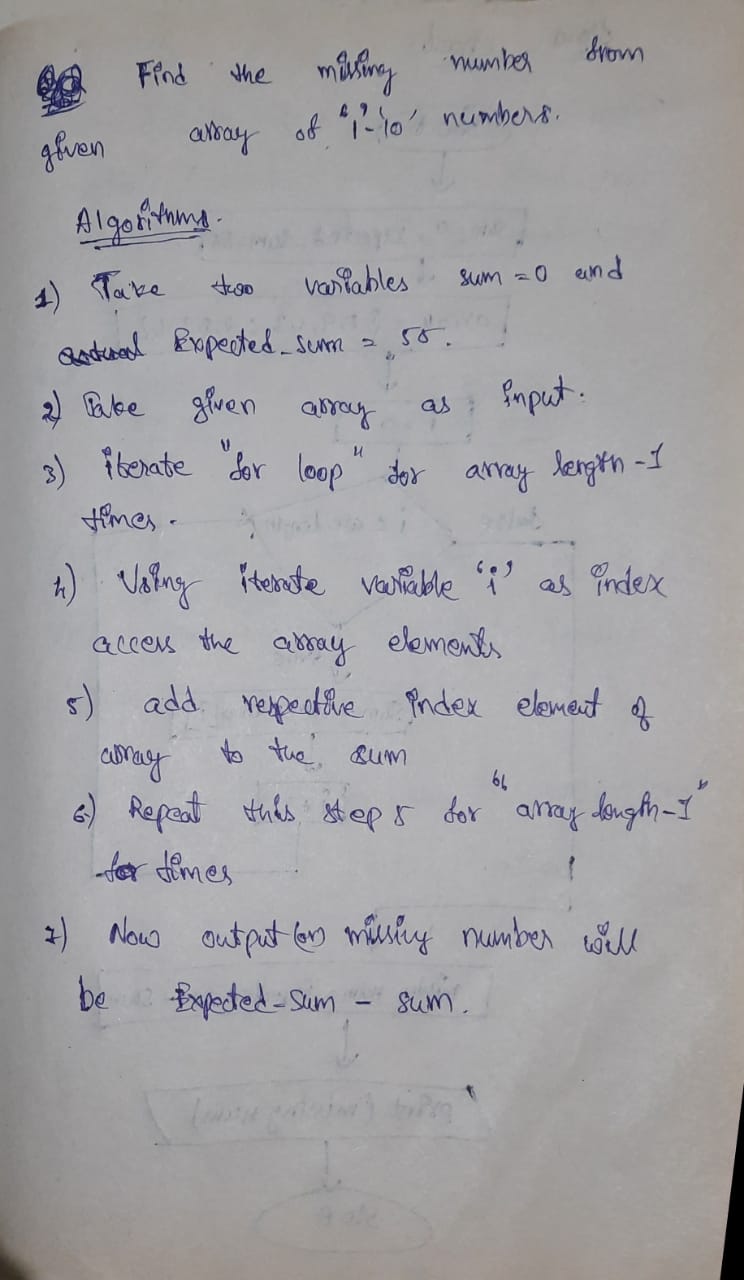 Find the missing number from
given array of "1-10" numbers.
Algorithms.
1) Take two variables sum = 0 and
Expected_sum = 55.
2) Take given array as input.
3) iterate "for loop" for array length-1
times.
4) Using iterate variable 'i' as index
access the array elements
5) add respective index element of
array to the sum
6) Repeat this step 5 for "array length-1"
times
7) Now output (or) missing number will
be Expected-sum - sum.